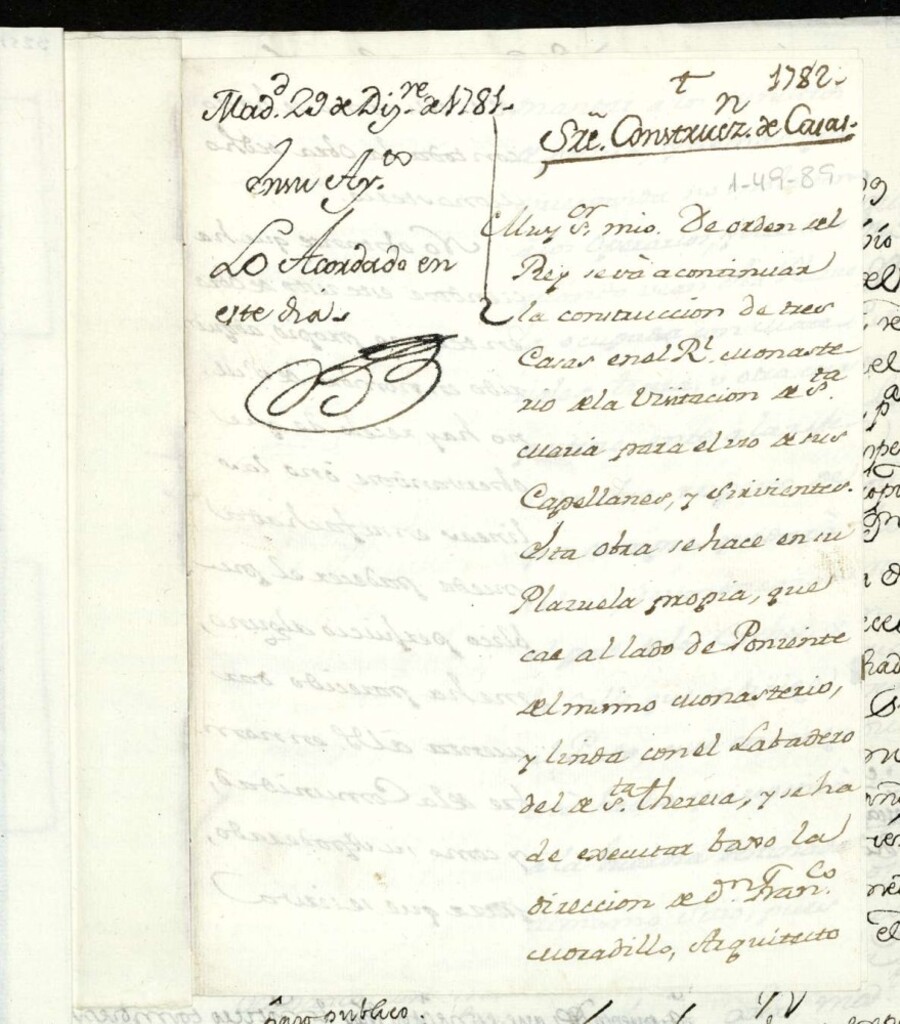 1782.
Sre. Construcn. de Casas.
1-49-89
Madd. 29 de Dizre. de 1781.
En su Ayto.
Lo Acordado en
este dia.
Muy Sor. mio. De orden del
Rey se vá a continuar
la construccion de tres
Casas en el Rl. Monaste-
rio de la Visitacion de Sta.
Maria para el uso de sus
Capellanes, y Sirvientes.
Esta obra se hace en su
Plazuela propia, que
cae al lado de Poniente
del mismo Monasterio,
y linda con el Labadero
del de Sta. Theresa, y se ha
de executar baxo la
direccion de Dn. Franco.
Moradillo, Arquitecto
publico.